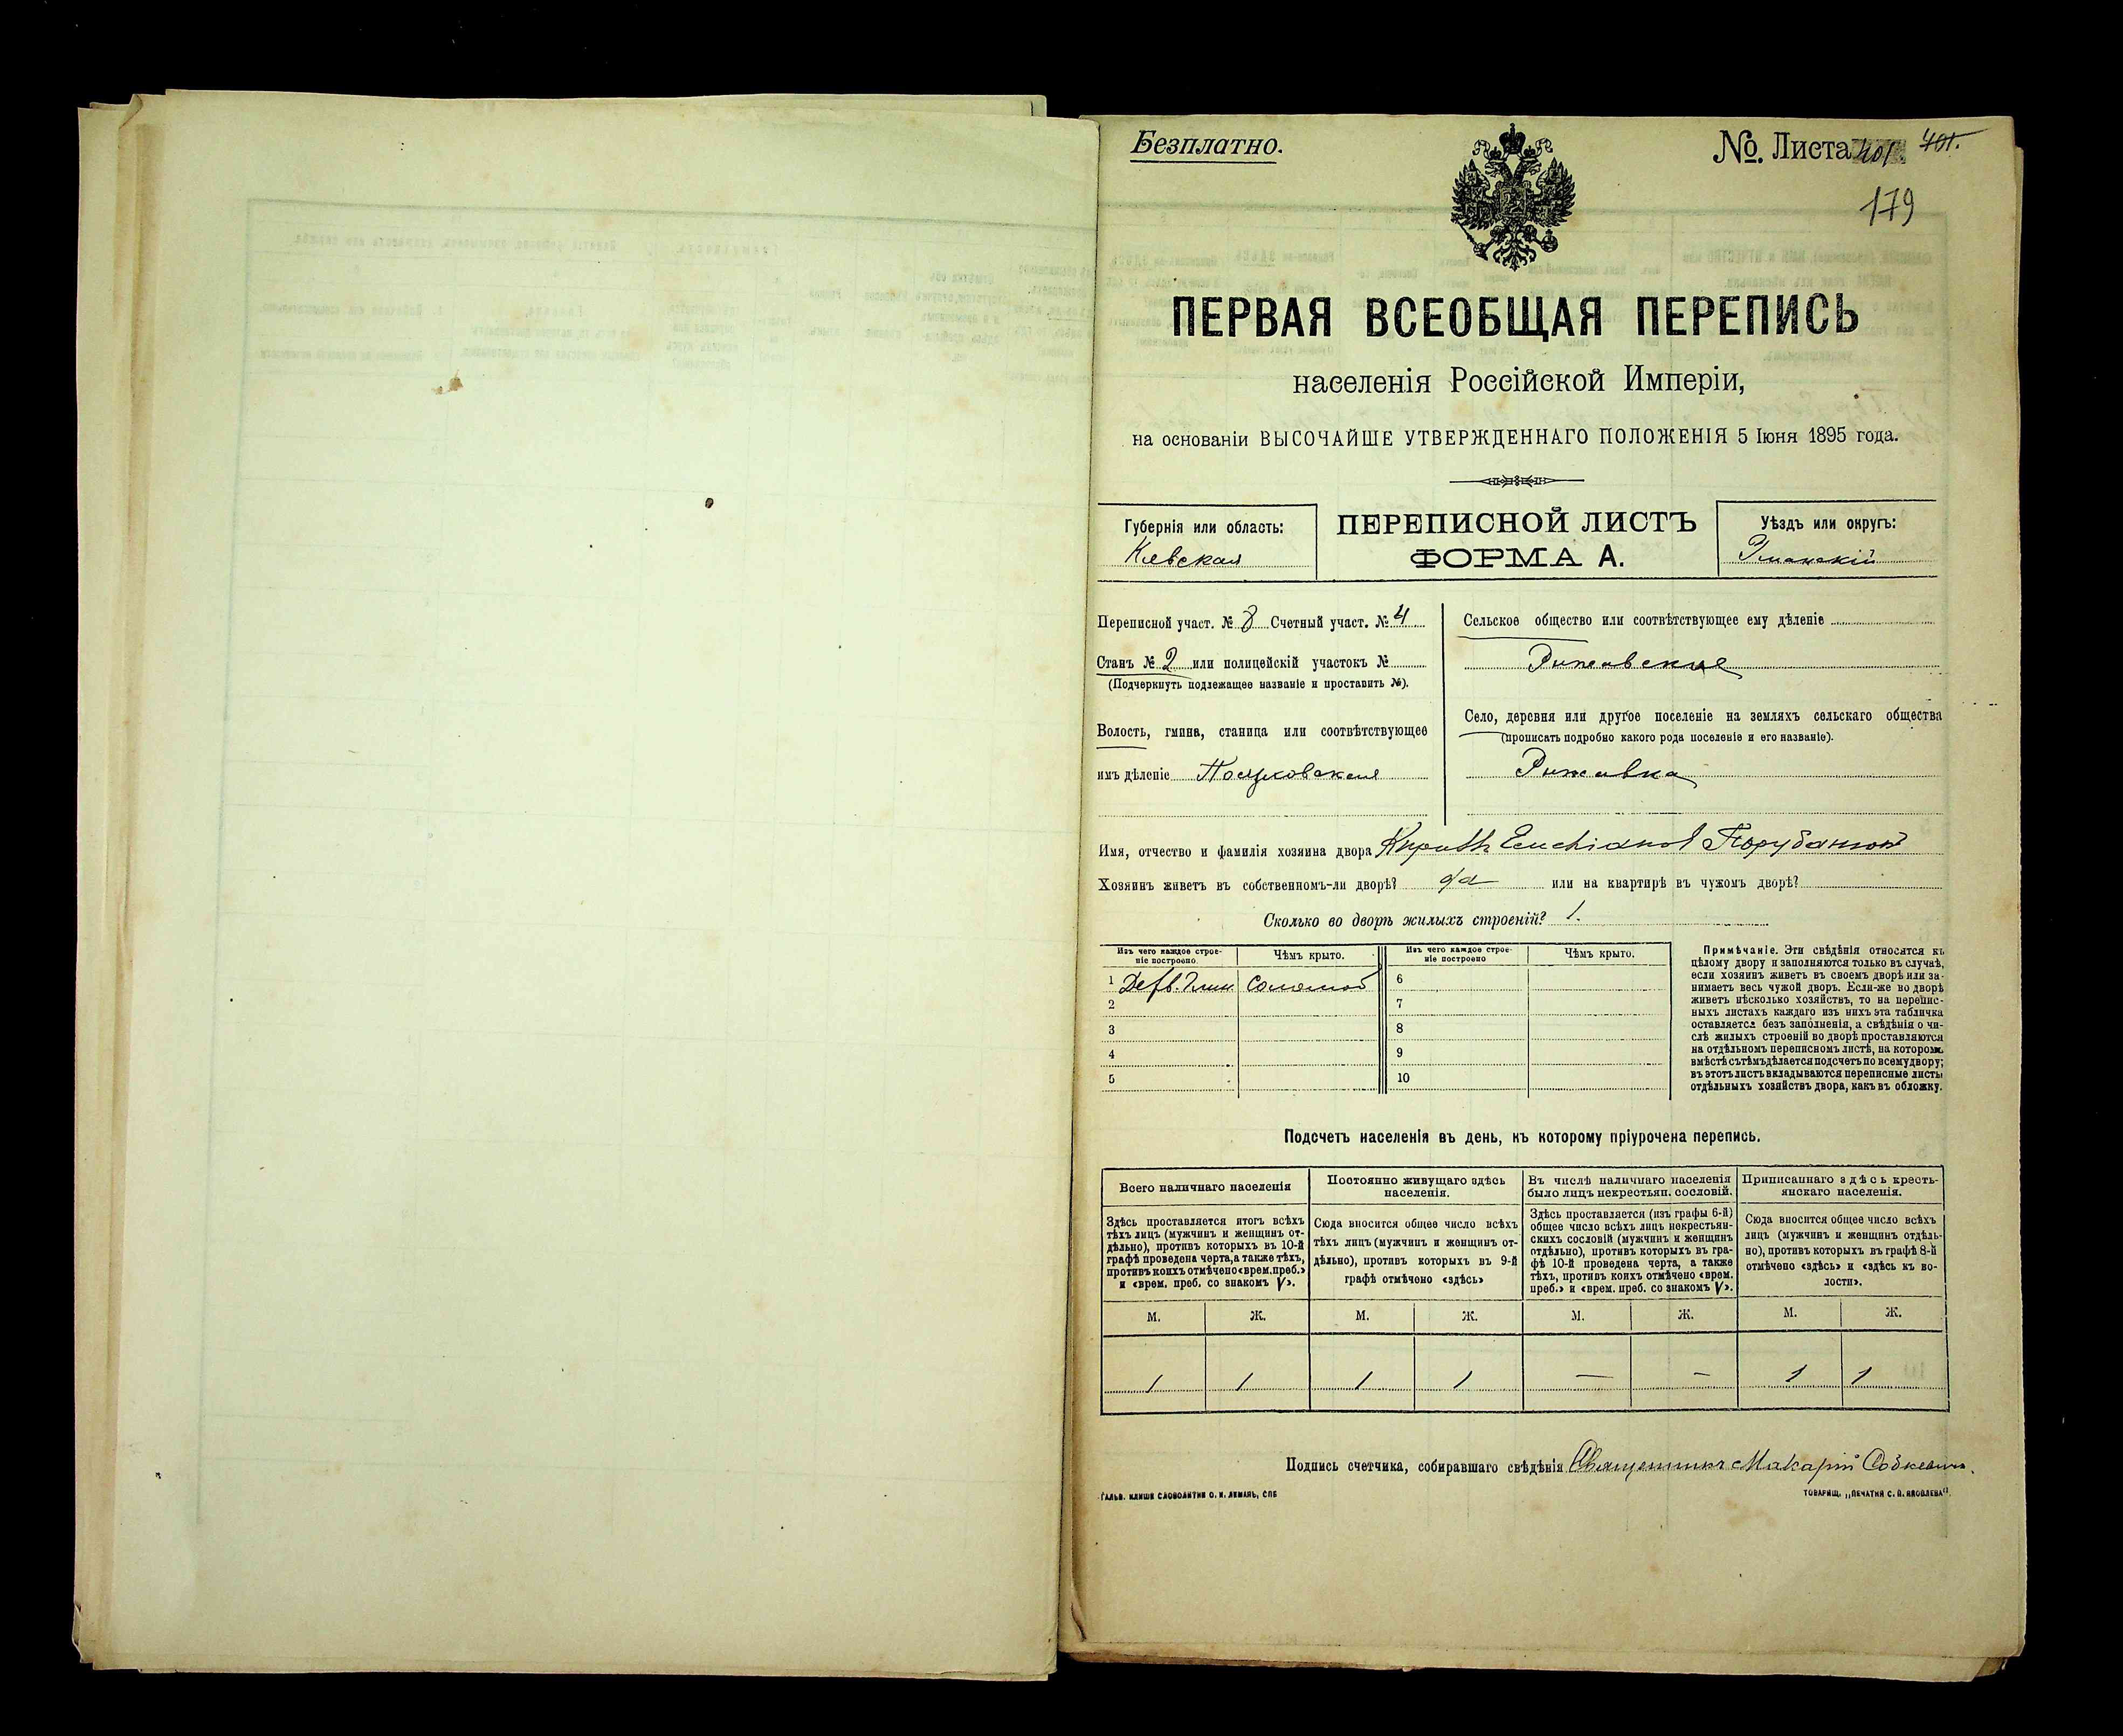 Безплатно.
№. Листа 401. 401.
179
ПЕРВАЯ ВСЕОБЩАЯ ПЕРЕПИСЬ
населенія Россійской Имперіи,
на основаніи ВЫСОЧАЙШЕ УТВЕРЖДЕННАГО ПОЛОЖЕНІЯ 5 Іюня 1895 года.
Губернія или область:
Кіевская
ПЕРЕПИСНОЙ ЛИСТЪ
ФОРМА А.
Уѣздъ или округъ:
Уманскій
Переписной участ. № 8 Счетный участ. № 4
Станъ № 2 или полицейскій участокъ №
(Подчеркнуть подлежащее названіе и проставить №).
Волость, гмина, станица или соотвѣтствующее
имъ дѣленіе
Сельское общество или соотвѣтствующее ему дѣленіе
Рижавское
Село, деревня или другое поселеніе на земляхъ сельскаго общества
(прописать подробно какого рода поселеніе и его названіе).
Рижавка
Имя, отчество и фамилія хозяина двора Порубанюк
Хозяинъ живетъ въ собственномъ-ли дворѣ? да или на квартирѣ въ чужомъ дворѣ?
Сколько во дворѣ жилыхъ строеній? 1.
Изъ чего каждое строе-
ніе построено.
Чѣмъ крыто.
Изъ чего каждое строе-
ніе построено
Чѣмъ крыто.
1 Дерв. Глин Соломой 6
2 7
3 8
4 9
5 10
Примѣчаніе. Эти свѣдѣнія относятся къ
цѣлому двору и заполняются только въ случаѣ,
если хозяинъ живетъ въ своемъ дворѣ или за-
нимаетъ весь чужой дворъ. Если-же во дворѣ
живетъ нѣсколько хозяйствъ, то на перепис-
ныхъ листахъ каждаго изъ нихъ эта табличка
оставляется безъ заполненія, а свѣдѣнія о чи-
слѣ жилыхъ строеній во дворѣ проставляются
на отдѣльномъ переписномъ листѣ, на которомъ
вмѣстѣ съ тѣмъ дѣлается подсчетъ по всему двору;
въ этотъ листъ вкладываются переписные листы
отдѣльныхъ хозяйствъ двора, какъ въ обложку.
Подсчетъ населенія въ день, къ которому пріурочена перепись.
Всего наличнаго населенія
Здѣсь проставляется итогъ всѣхъ
тѣхъ лицъ (мужчинъ и женщинъ от-
дѣльно), противъ которыхъ въ 10-й
графѣ проведена черта, а также тѣхъ,
противъ коихъ отмѣчено «врем. преб.»
и «врем. преб. со знакомъ V».
Постоянно живущаго здѣсь
населенія.
Сюда вносится общее число всѣхъ
тѣхъ лицъ (мужчинъ и женщинъ от-
дѣльно), противъ которыхъ въ 9-й
графѣ отмѣчено «здѣсь»
Въ числѣ наличнаго населенія
было лицъ некрестьян. сословій.
Здѣсь проставляется (изъ графы 6-й)
общее число всѣхъ лицъ некрестьян-
скихъ сословій (мужчинъ и женщинъ
отдѣльно), противъ которыхъ въ гра-
фѣ 10-й проведена черта, а также
тѣхъ, противъ коихъ отмѣчено «врем.
преб.» и «врем. преб. со знакомъ V».
Приписаннаго здѣсь кресть-
янскаго населенія.
Сюда вносится общее число всѣхъ
лицъ (мужчинъ и женщинъ отдѣль-
но), противъ которыхъ въ графѣ 8-й
отмѣчено «здѣсь» и «здѣсь къ во-
лости».
М. Ж. М. Ж. М. Ж. М. Ж.
1 1 1 1 — — 1 1
Подпись счетчика, собиравшаго свѣдѣнія Священникъ Макарій Собкевичъ.
ГАЛЬВ. КЛИШЕ СЛОВОЛИТНИ О. И. ЛЕМАНЪ, СПБ
ТОВАРИЩ. „ПЕЧАТНЯ С. П. ЯКОВЛЕВА".